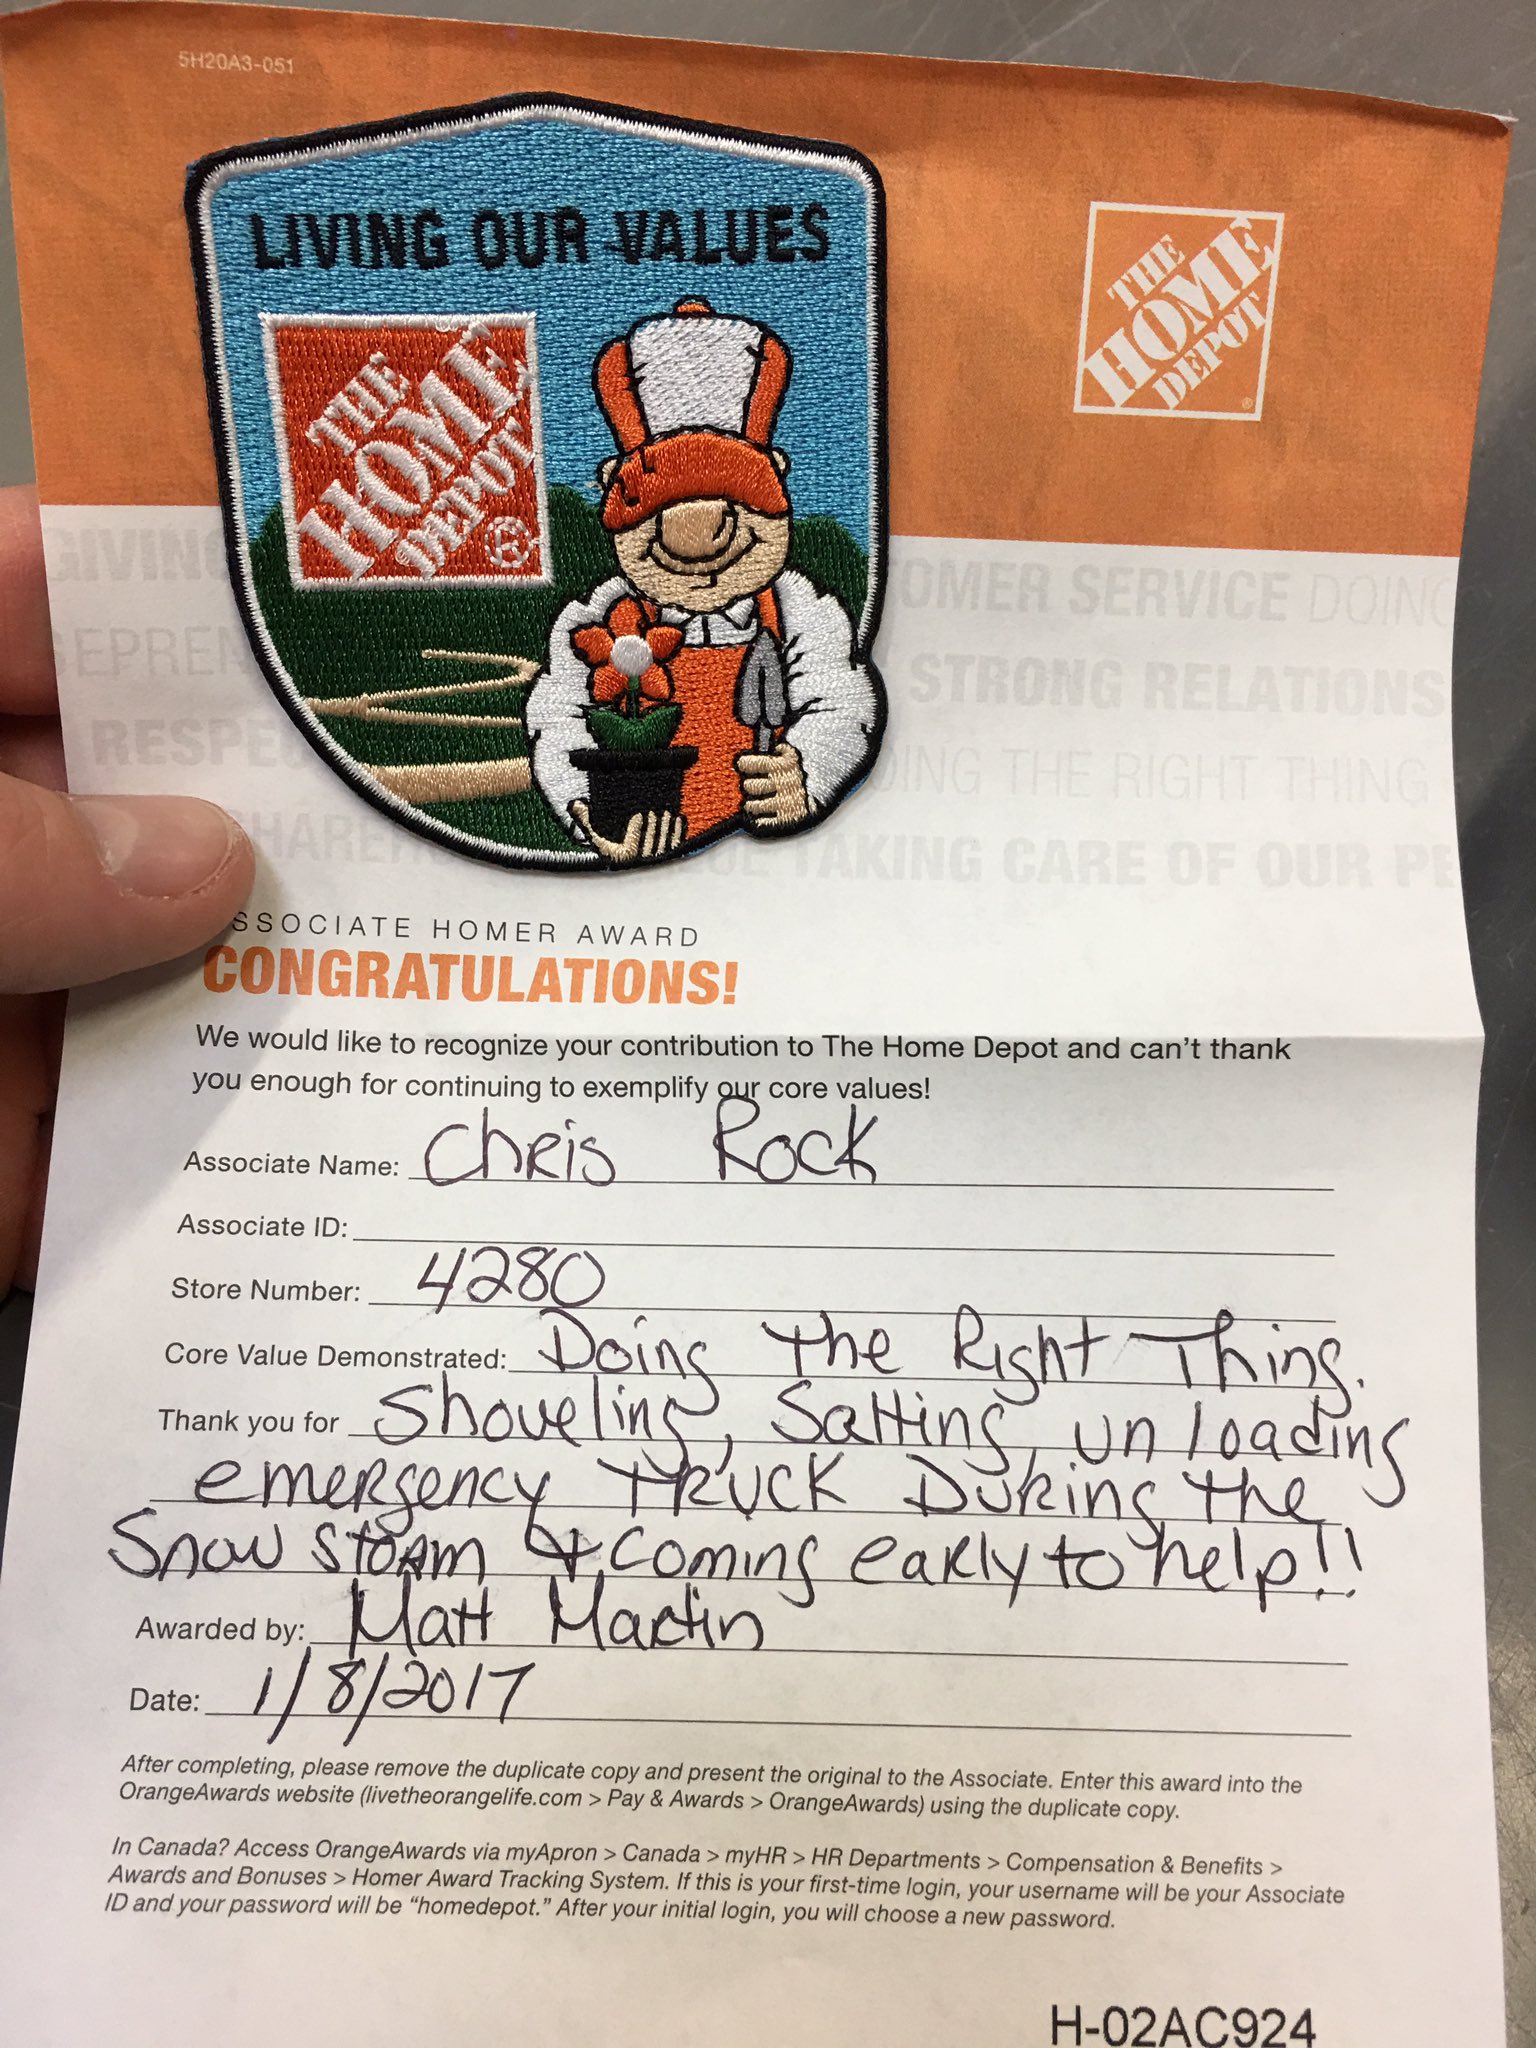 5H20A3-051
LIVING OUR VALUES
THE
HOME
DEPOT
®
THE
HOME
DEPOT
®
GIVING
OMER SERVICE DOING
EPREN
STRONG RELATIONS
RESPE
OING THE RIGHT THING
HARE
UE TAKING CARE OF OUR PE
SSOCIATE HOMER AWARD
CONGRATULATIONS!
We would like to recognize your contribution to The Home Depot and can't thank
you enough for continuing to exemplify our core values!
Associate Name: Chris Rock
Associate ID:
Store Number: 4280
Core Value Demonstrated: Doing the Right Thing.
Thank you for Shoveling, Salting, unloading
emergency TRUCK During the
Snow storm & coming early to help!!
Awarded by: Matt Martin
Date: 1/8/2017
After completing, please remove the duplicate copy and present the original to the Associate. Enter this award into the
OrangeAwards website (livetheorangelife.com > Pay & Awards > OrangeAwards) using the duplicate copy.
In Canada? Access OrangeAwards via myApron > Canada > myHR > HR Departments > Compensation & Benefits >
Awards and Bonuses > Homer Award Tracking System. If this is your first-time login, your username will be your Associate
ID and your password will be "homedepot." After your initial login, you will choose a new password.
H-02AC924